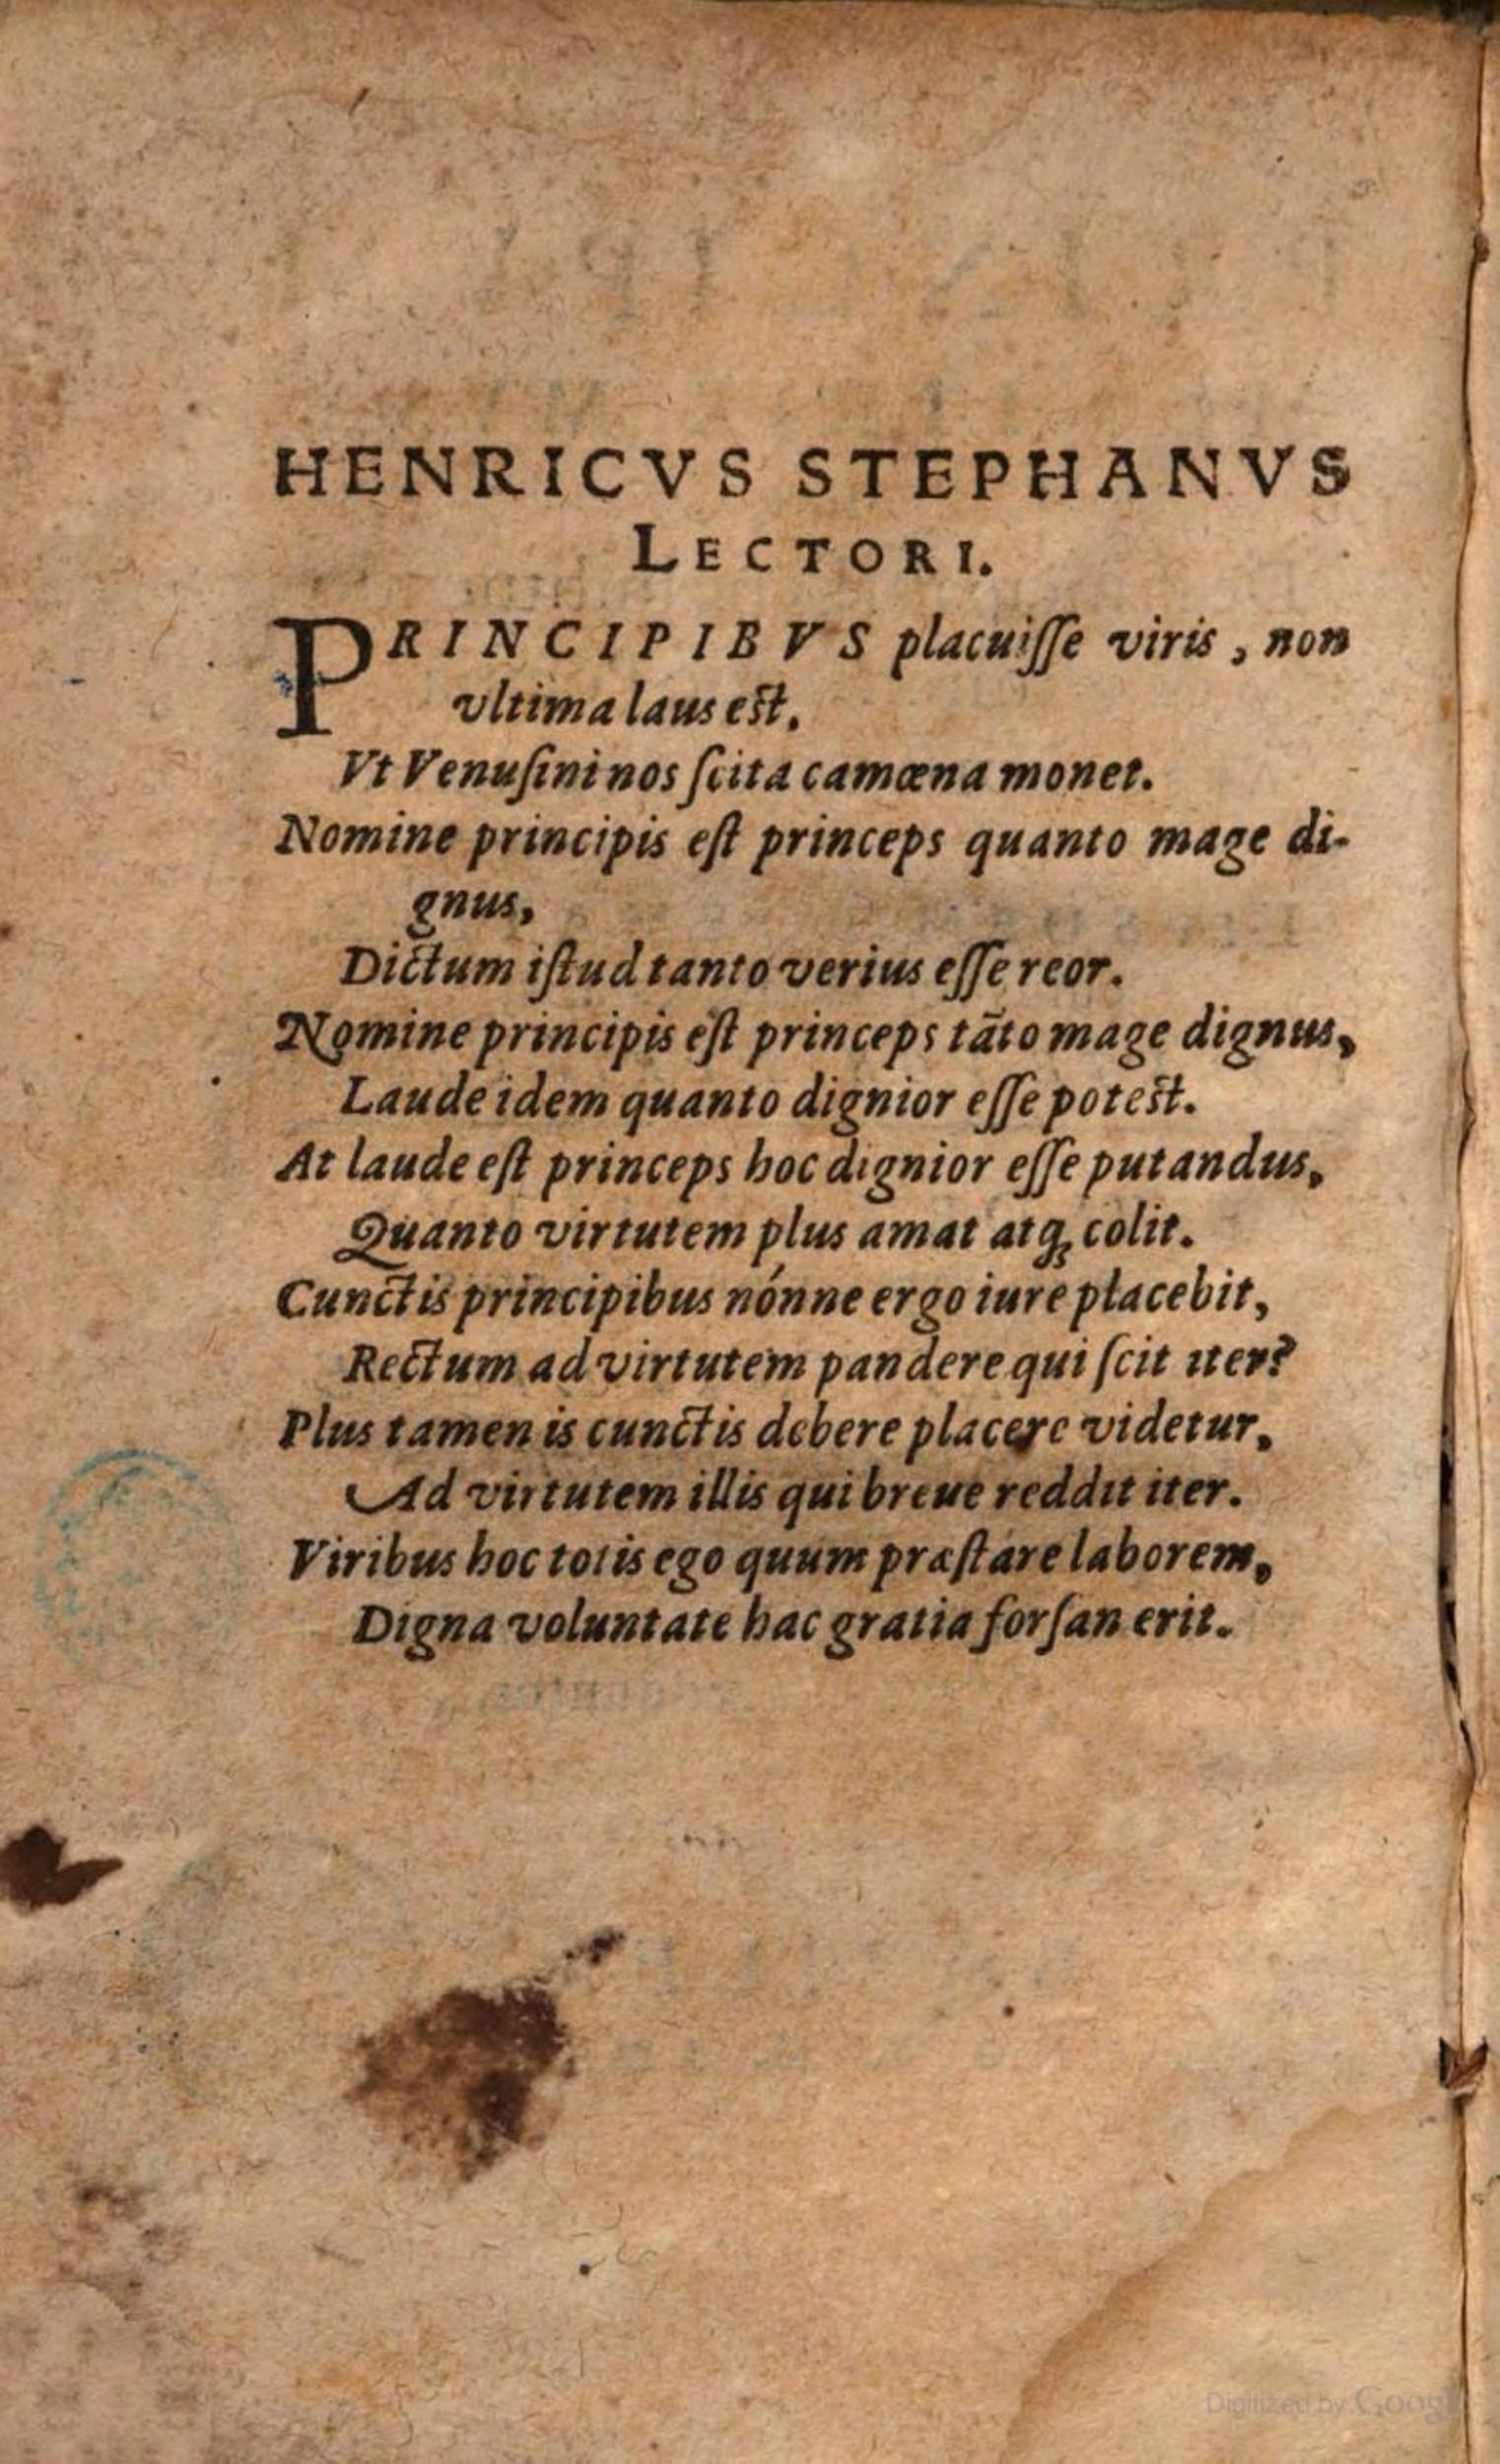 HENRICVS STEPHANVS
LECTORI.
PRINCIPIBVS placuiſſe viris, non
vltima laus eſt,
Vt Venuſini nos ſcita camœna monet.
Nomine principis eſt princeps quanto mage di-
gnus,
Dictum iſtud tanto verius eſſe reor.
Nomine principis eſt princeps tãto mage dignus,
Laude idem quanto dignior eſſe poteſt.
At laude eſt princeps hoc dignior eſſe putandus,
Quanto virtutem plus amat atq; colit.
Cunctis principibus nónne ergo iure placebit,
Rectum ad virtutem pandere qui ſcit iter?
Plus tamen is cunctis debere placere videtur,
Ad virtutem illis qui breue reddit iter.
Viribus hoc totis ego quum præſtare laborem,
Digna voluntate hac gratia forſan erit.
Digitized by Google